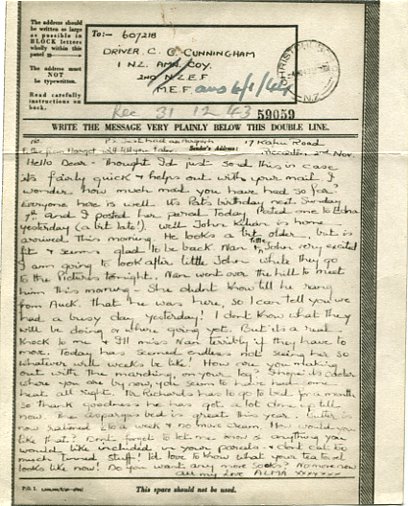 The address should
be written as large
as possible in
BLOCK letters
wholly within this
panel
The address must
NOT
be typewritten.
Read carefully
instructions on
back.
To:— 607218
DRIVER. C. C. CUNNINGHAM
1 N.Z. AMN. COY.
2ND N.Z.E.F
M.E.F. ans 6/1/44
CHRISTCHURCH
N.Z.
Rec 31 12 43 59059
WRITE THE MESSAGE VERY PLAINLY BELOW THIS DOUBLE LINE.
Sender's Address: 17 Kahu Road
Riccarton 2nd Nov.
Hello Dear - Thought I'd just send this in case
its fairly quick & helps out with your mail I
wonder how much mail you have had so far?
Everyone here is well. Its Pat's birthday next Sunday
7th and I posted her parcel Today. Posted one to Edna
yesterday (a bit late!). Well John is home
arrived this morning. He looks a bit older but is
fit & seems glad to be back Nan & little John very excited
I am going to look after little John while they go
to the Pictures tonight. Nan went over the hill to meet
him this morning - She didn't know till he rang
from Auck. that he was here, so I can tell you we
had a busy day yesterday! I dont know what they
will be doing or where going yet. But its a real
knock to me & I'll miss Nan terribly if they have to
move. Today has seemed endless not seeing her so
whatever will weeks be like! How are you making
out with the marching on your leg? I hope its cooler
where you are by now, you seem to have had some
heat all right. Mr Richards has to go to bed for a month
so thank goodness he has got a lot done up till
now The aspargas bed is great this year. Butter is
now rationed to a week & no more cream. How would you
like that? Dont forget to let me know if anything you
would like included in your parcels & dont eat too
much tinned stuff! I'd love to know what your tea
looks like now! Do you want any more socks? No more now
all my love ALMA xxxxxxx
This space should not be used.